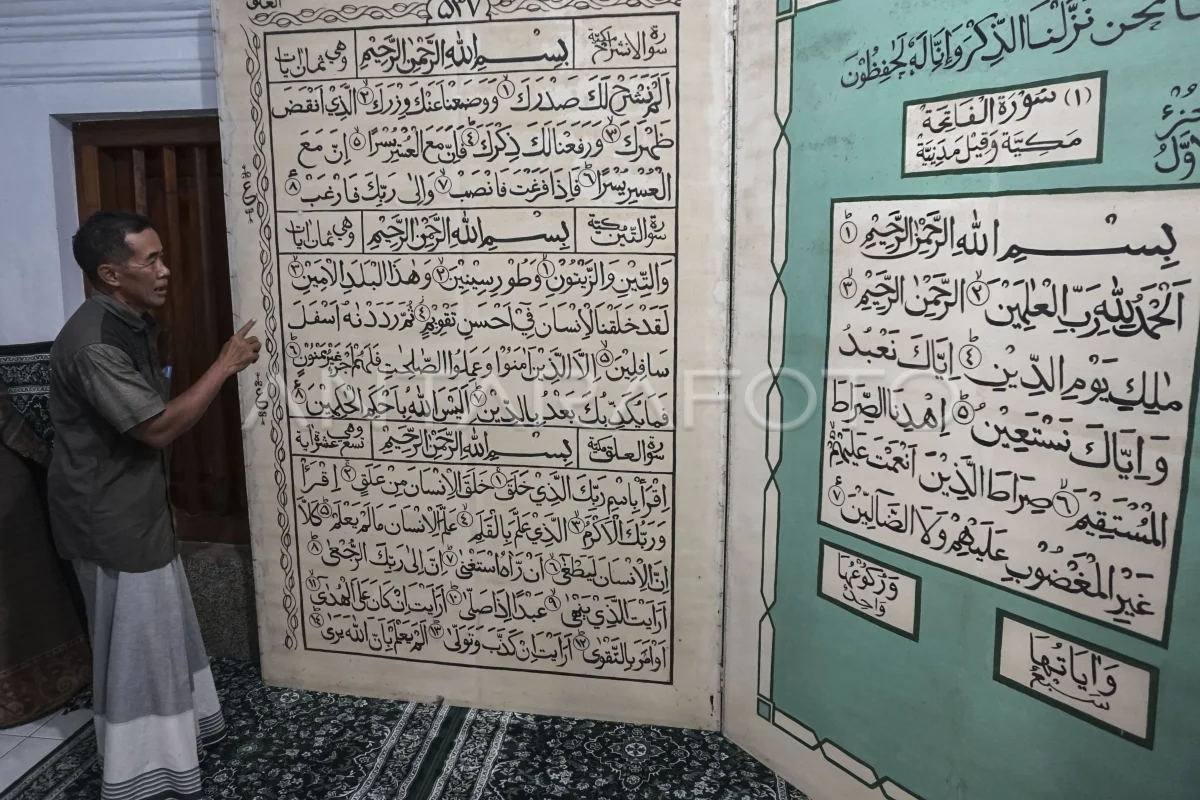 العلق
٥٣٧
سورة الانشراح مكية
بِسْمِ اللهِ الرَّحْمٰنِ الرَّحِيْمِ
وهي ثمان ايات
اَلَمْ نَشْرَحْ لَكَ صَدْرَكَ ١ وَوَضَعْنَا عَنْكَ وِزْرَكَ ٢ الَّذِيْ اَنْقَضَ
ظَهْرَكَ ٣ وَرَفَعْنَا لَكَ ذِكْرَكَ ٤ فَاِنَّ مَعَ الْعُسْرِ يُسْرًا ٥ اِنَّ مَعَ
الْعُسْرِ يُسْرًا ٦ فَاِذَا فَرَغْتَ فَانْصَبْ ٧ وَاِلٰى رَبِّكَ فَارْغَبْ ٨
سورة التين مكية
بِسْمِ اللهِ الرَّحْمٰنِ الرَّحِيْمِ
وهي ثمان ايات
وَالتِّيْنِ وَالزَّيْتُوْنِ ١ وَطُوْرِ سِيْنِيْنَ ٢ وَهٰذَا الْبَلَدِ الْاَمِيْنِ ٣
لَقَدْ خَلَقْنَا الْاِنْسَانَ فِيْ اَحْسَنِ تَقْوِيْمٍ ٤ ثُمَّ رَدَدْنٰهُ اَسْفَلَ
سَافِلِيْنَ ٥ اِلَّا الَّذِيْنَ اٰمَنُوْا وَعَمِلُوا الصّٰلِحٰتِ فَلَهُمْ اَجْرٌ غَيْرُ مَمْنُوْنٍ ٦
فَمَا يُكَذِّبُكَ بَعْدُ بِالدِّيْنِ ٧ اَلَيْسَ اللهُ بِاَحْكَمِ الْحٰكِمِيْنَ ٨
سورة العلق مكية
بِسْمِ اللهِ الرَّحْمٰنِ الرَّحِيْمِ
وهي تسع عشرة اية
اِقْرَأْ بِاسْمِ رَبِّكَ الَّذِيْ خَلَقَ ١ خَلَقَ الْاِنْسَانَ مِنْ عَلَقٍ ٢ اِقْرَأْ
وَرَبُّكَ الْاَكْرَمُ ٣ الَّذِيْ عَلَّمَ بِالْقَلَمِ ٤ عَلَّمَ الْاِنْسَانَ مَا لَمْ يَعْلَمْ ٥ كَلَّا
اِنَّ الْاِنْسَانَ لَيَطْغٰى ٦ اَنْ رَّاٰهُ اسْتَغْنٰى ٧ اِنَّ اِلٰى رَبِّكَ الرُّجْعٰى ٨
اَرَاَيْتَ الَّذِيْ يَنْهٰى ٩ عَبْدًا اِذَا صَلّٰى ١٠ اَرَاَيْتَ اِنْ كَانَ عَلَى الْهُدٰى ١١
اَوْ اَمَرَ بِالتَّقْوٰى ١٢ اَرَاَيْتَ اِنْ كَذَّبَ وَتَوَلّٰى ١٣ اَلَمْ يَعْلَمْ بِاَنَّ اللهَ يَرٰى ١٤
نَحْنُ نَزَّلْنَا الذِّكْرَ وَاِنَّا لَهٗ لَحٰفِظُوْنَ
(١) سُوْرَةُ الْفَاتِحَةِ
مَكِّيَّةٌ وَقِيْلَ مَدَنِيَّةٌ
بِسْمِ اللهِ الرَّحْمٰنِ الرَّحِيْمِ ١
اَلْحَمْدُ لِلّٰهِ رَبِّ الْعٰلَمِيْنَ ٢ الرَّحْمٰنِ الرَّحِيْمِ ٣
مٰلِكِ يَوْمِ الدِّيْنِ ٤ اِيَّاكَ نَعْبُدُ
وَاِيَّاكَ نَسْتَعِيْنُ ٥ اِهْدِنَا الصِّرَاطَ
الْمُسْتَقِيْمَ ٦ صِرَاطَ الَّذِيْنَ اَنْعَمْتَ عَلَيْهِمْ
غَيْرِ الْمَغْضُوْبِ عَلَيْهِمْ وَلَا الضَّالِّيْنَ ٧
وَرُكُوْعُهَا
وَاحِدٌ
وَاٰيَاتُهَا
سَبْعٌ
ANTARAFOTO